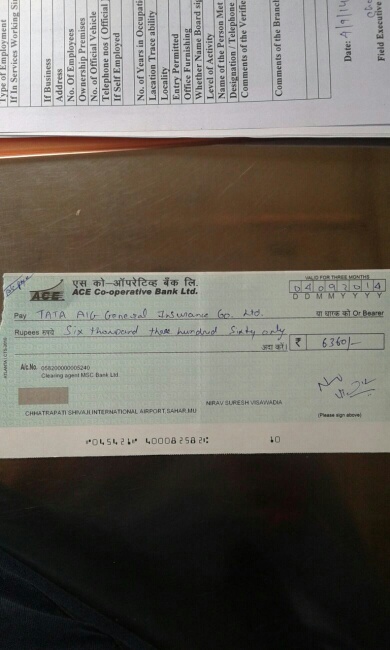 Type of Employment
If In Services Working Si
If Business
Address
No. Of Employees
Ownership Premises
No. of Official Vehicle
Telephone nos ( Official )
If Self Employed
No. of Years in Occupati
Lacation Trace ability
Locality
Entry Permitted
Office Furnishing
Whether Name Board si
Level of Activity
Name of the Person Met
Designation / Telephone
Comments of the Verifie
Comments of the Branch
Date: 4/9/14
Field Executive
ACE
एस को-ऑपरेटिव्ह बैंक लि.
ACE Co-operative Bank Ltd.
VALID FOR THREE MONTHS
04092014
D D M M Y Y Y Y
Pay TATA AIG General Insurance Co. Ltd. या धारक को Or Bearer
Rupees रुपये Six thousand three hundred Sixty only
अदा करें ₹ 6360/-
A/c.No. 05820000006240
Clearing agent MSC Bank Ltd.
NIRAV SURESH VISAWADIA
CHHATRAPATI SHIVAJI INTERNATIONAL AIRPORT,SAHAR,MU
(Please sign above)
⑈045421⑈ 400082582⑆ 10